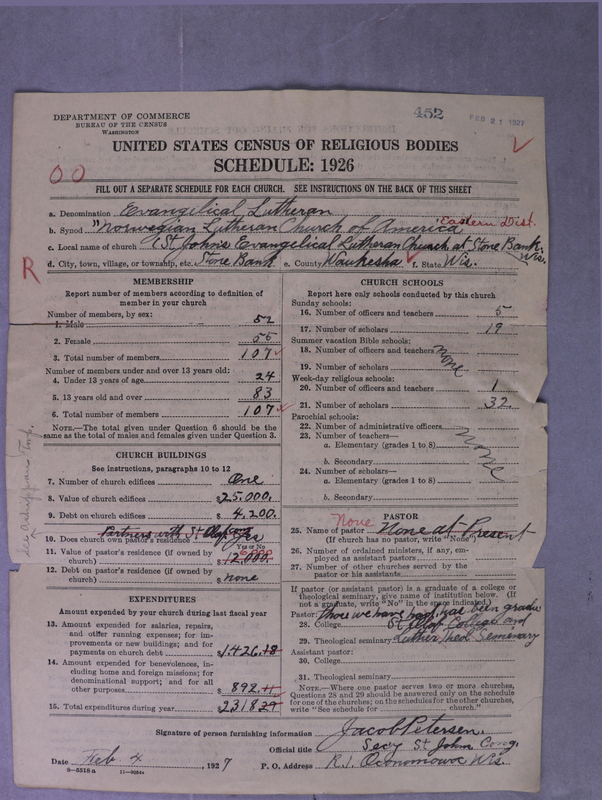 452
FEB 21 1927
DEPARTMENT OF COMMERCE
BUREAU OF THE CENSUS
WASHINGTON
UNITED STATES CENSUS OF RELIGIOUS BODIES
SCHEDULE: 1926
OO
FILL OUT A SEPARATE SCHEDULE FOR EACH CHURCH. SEE INSTRUCTIONS ON THE BACK OF THIS SHEET
a. Denomination Evangelical Lutheran
b. Synod "Norwegian Lutheran Church of America Eastern Dist.
c. Local name of church (St. Johns Evangelical Lutheran Church at Stone Bank Wis.
d. City, town, village, or township, etc. Stone Bank e. County Waukesha f. State Wis.
R
MEMBERSHIP
Report number of members according to definition of
member in your church
Number of members, by sex:
1. Male 52
2. Female 55
3. Total number of members 107
Number of members under and over 13 years old:
4. Under 13 years of age 24
5. 13 years old and over 83
6. Total number of members 107
NOTE.—The total given under Question 6 should be the
same as the total of males and females given under Question 3.
CHURCH BUILDINGS
See instructions, paragraphs 10 to 12
7. Number of church edifices One
8. Value of church edifices $25,000.
9. Debt on church edifices $4,200.
Partners with St Olaf Cong
10. Does church own pastor's residence? Yes
Yes or No
11. Value of pastor's residence (if owned by
church) $12,000.
12. Debt on pastor's residence (if owned by
church) $none
EXPENDITURES
Amount expended by your church during last fiscal year
13. Amount expended for salaries, repairs,
and other running expenses; for im-
provements or new buildings; and for
payments on church debt $1426.18
14. Amount expended for benevolences, in-
cluding home and foreign missions; for
denominational support; and for all
other purposes $892.11
15. Total expenditures during year $2318 29
CHURCH SCHOOLS
Report here only schools conducted by this church
Sunday schools:
16. Number of officers and teachers 5
17. Number of scholars 19
Summer vacation Bible schools:
18. Number of officers and teachers none
19. Number of scholars
Week-day religious schools:
20. Number of officers and teachers 1
21. Number of scholars 32
Parochial schools:
22. Number of administrative officers
23. Number of teachers—
a. Elementary (grades 1 to 8) none
b. Secondary
24. Number of scholars—
a. Elementary (grades 1 to 8)
b. Secondary
PASTOR
None
25. Name of pastor None at Present
(If church has no pastor, write "None")
26. Number of ordained ministers, if any, em-
ployed as assistant pastors
27. Number of other churches served by the
pastor or his assistants
If pastor (or assistant pastor) is a graduate of a college or
theological seminary, give name of institution below. (If
not a graduate, write "No" in the space indicated.)
Pastor: Those we have had, has been gradu
28. College St Olaf College and
29. Theological seminary Luther Theol Seminary
Assistant pastor:
30. College
31. Theological seminary
NOTE.—Where one pastor serves two or more churches,
Questions 28 and 29 should be answered only on the schedule
for one of the churches; on the schedules for the other churches,
write "See schedule for church."
Signature of person furnishing information Jacob Petersen.
Official title Secy St John Cong.
Date Feb 4, 1927 P. O. Address R.1. Oconomowoc Wis.
8—5518a